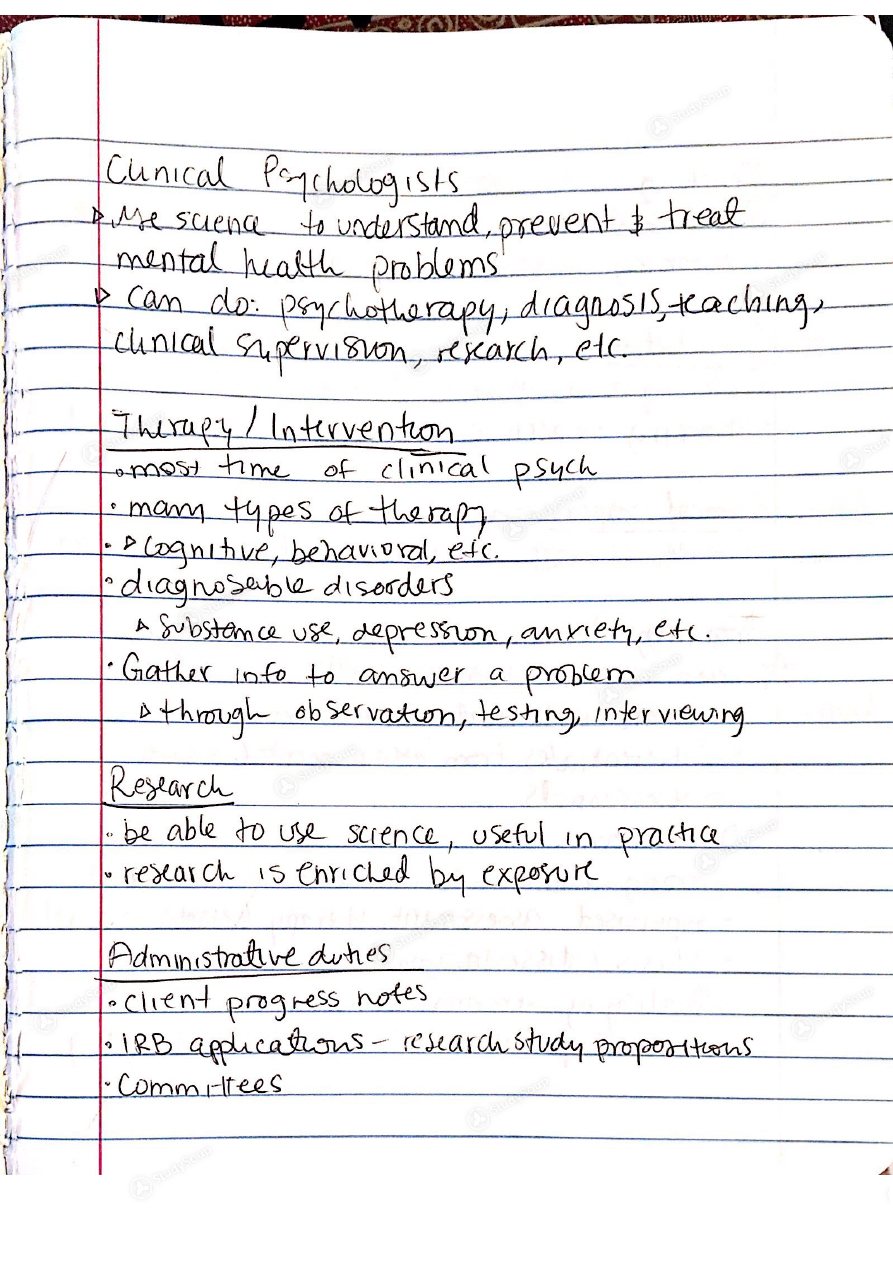 Clinical Psychologists
▷ Use science to understand, prevent & treat
mental health problems
▷ Can do: psychotherapy, diagnosis, teaching,
clinical supervision, research, etc.
Therapy / Intervention
• most time of clinical psych
• many types of therapy
• ▷ Cognitive, behavioral, etc.
• diagnoseable disorders
▷ Substance use, depression, anxiety, etc.
• Gather info to answer a problem
▷ through observation, testing, interviewing
Research
• be able to use science, useful in practice
• research is enriched by exposure
Administrative duties
• client progress notes
• IRB applications – research study propositions
• Committees
StudySoup